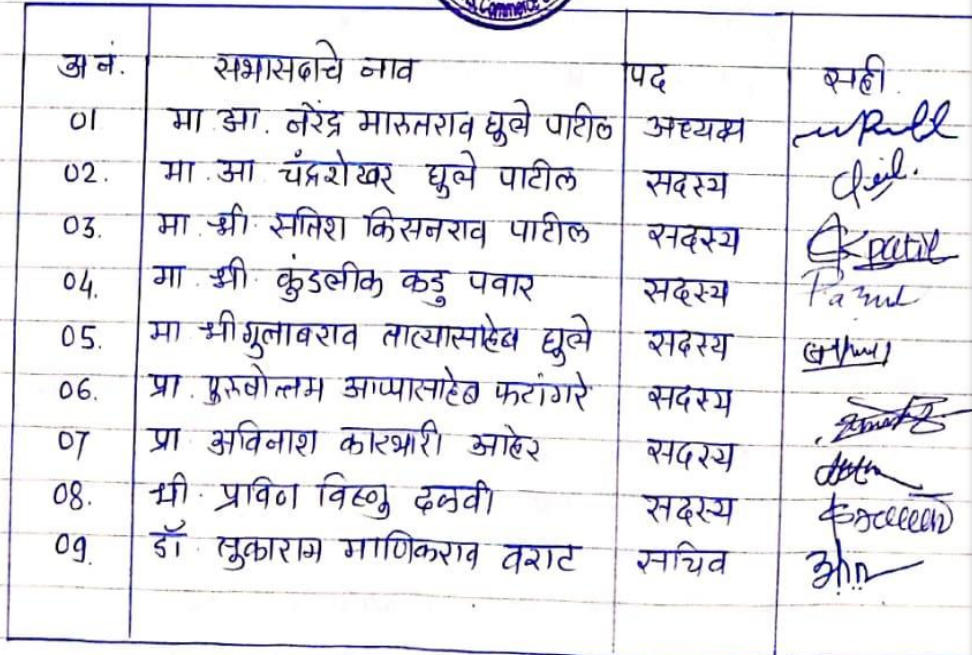 Commerce
अ नं. सभासदाचे नाव पद सही.
01 मा. आ. नरेंद्र मारुतराव घुले पाटील अध्यक्ष
02. मा. आ. चंद्रशेखर घुले पाटील सदस्य
03. मा. श्री. सतिश किसनराव पाटील सदस्य patil
04. मा. श्री. कुंडलीक कडु पवार सदस्य
05. मा श्री गुलाबराव तात्यासाहेब घुले सदस्य
06. प्रा. पुरुषोत्तम आप्पासाहेब फटांगरे सदस्य
07 प्रा अविनाश कारभारी आहेर सदस्य
08. श्री. प्रविण विष्णु दळवी सदस्य
09. डॉ. तुकाराम माणिकराव वराट सचिव